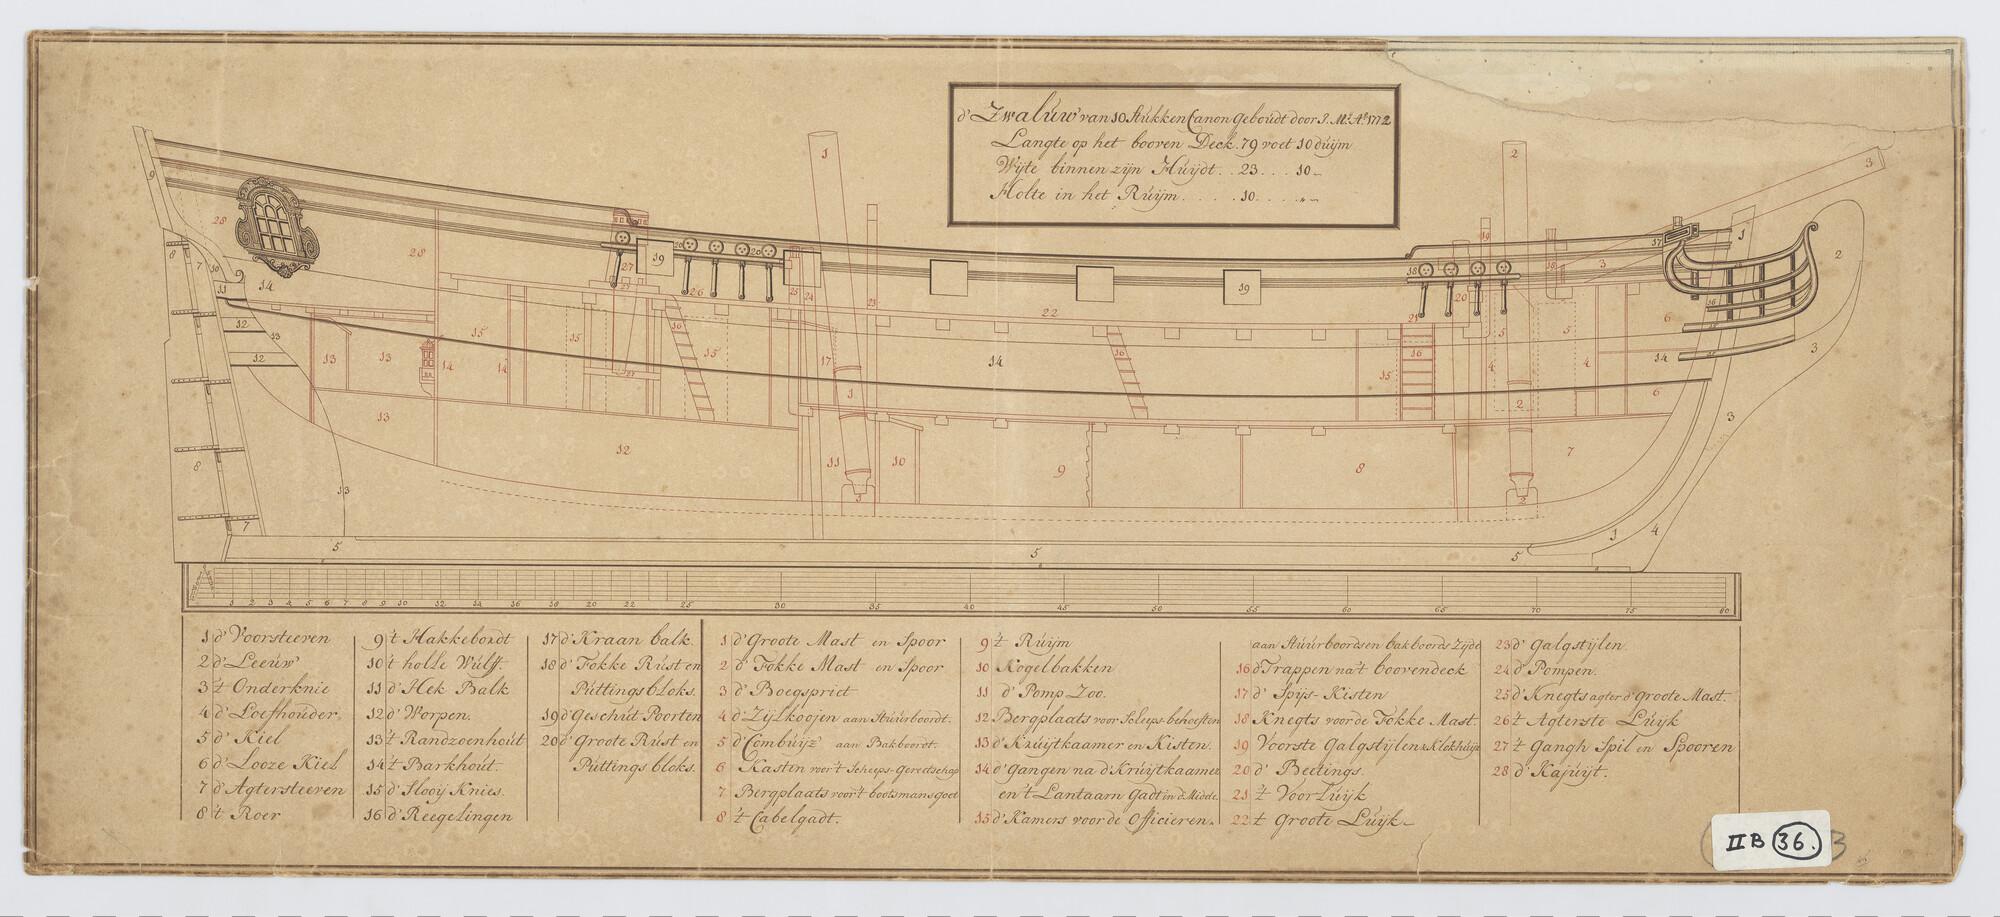 d' Zwaluw van 10 Stukken Canon Geboudt door P. M: A° 1772
Langte op het booven Deck. 79 voet 10 duijm
Wijte binnen zijn Huijdt. . 23. . . 10 „
Holte in het Ruijm. . . . . 10. . . . „ „
1 2 3 4 5 6 7 8 9 10 12 14 16 18 20 22 25 30 35 40 45 50 55 60 65 70 75 80
1 d' Voorsteeven
2 d' Leeuw
3 't Onderknie
4 d' Loefhouder
5 d' Kiel
6 d' Looze Kiel
7 d' Agtersteeven
8 't Roer
9 't Hakkebordt
10 't holle Wulff.
11 d' Hek Balk
12 d' Worpen.
13 't Randzoenhout
14 't Barkhout.
15 d' Slooij Knies.
16 d' Reegelingen
17 d' Kraan balk.
18 d' Fokke Rust en
Puttings bloks.
19 d' Geschut Poorten
20 d' Groote Rust en
Puttings bloks.
1 d' Groote Mast en Spoor
2 d' Fokke Mast en Spoor
3 d' Boegspriet
4 d' Zijlkoojen aan Stuurboordt.
5 d' Combuijz aan Bakboordt.
6 Kasten voor 't Scheeps-Gereetschap
7 Bergplaats voor 't bootsmans goet
8 't Cabelgadt.
9 't Ruijm
10 Kogelbakken
11 d' Pomp Zoo.
12 Bergplaats voor Scheeps-behoeften
13 d' Kruijtkaamer en Kisten.
14 d' Gangen na d' Kruijtkaamer
en 't Lantaarn Gadt in d' Midde.
15 d' Kamers voor de Officieren.
aan Stuurboordt en bakboords Zijde
16 d' Trappen na 't boovendeck
17 d' Spijs-Kisten
18 Knegts voor de Fokke Mast.
19 Voorste Galgstijlen & Klokhuijs
20 d' Beetings.
21 't Voor Luijk
22 't Groote Luijk
23 d' Galgstijlen
24 d' Pompen.
25 d' Knegts agter d' Groote Mast.
26 't Agterste Luijk
27 't Gangh Spil en Spooren
28 d' Kajuijt.
II B 36.
3